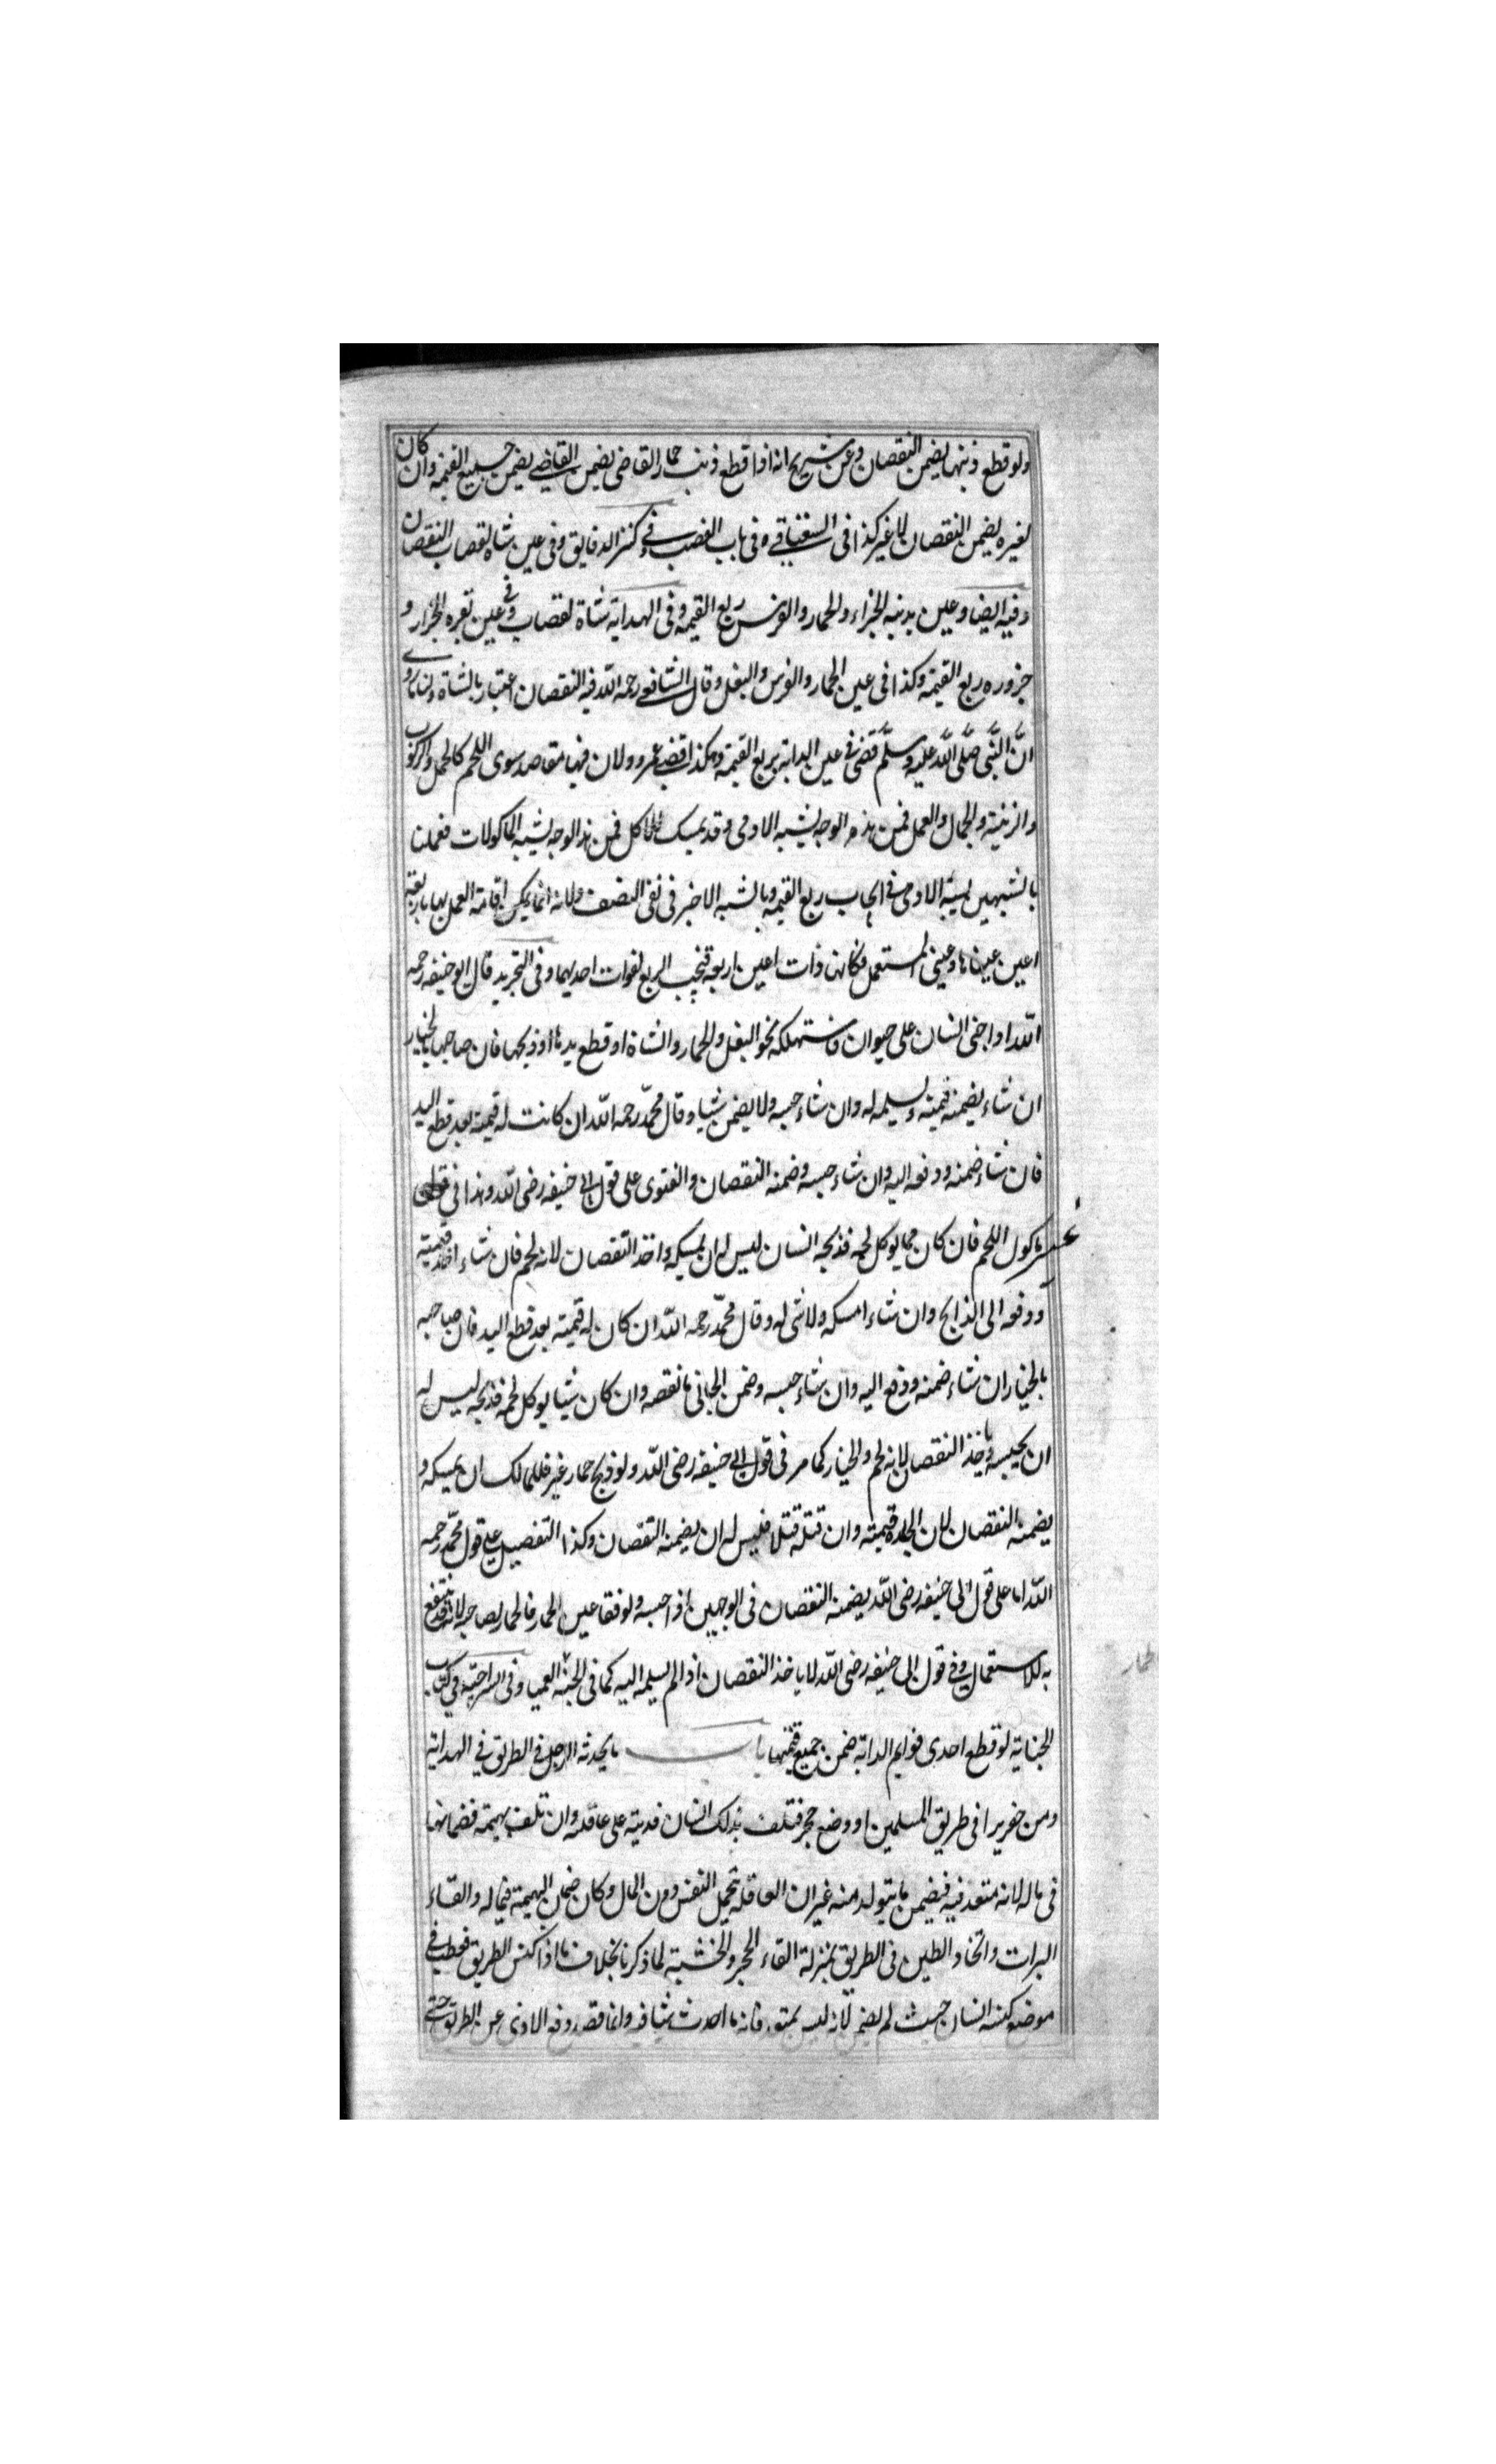 ولو قطع ذنبها يضمن النقصان وعن شريح انه اذا قطع ذنب حمار القاضي يضمن القاضي يضمن جميع القيمة وان كان
لغيره يضمن النقصان لا غير كذا في السغناقي ه في باب الغصب وفي كنز الدقايق وفي عين شاة لقصاب النقصان
وفيه ايضا وعين بدنة الجزار والحمار والفرس ربع القيمة وفي الهداية شاة لقصاب وفي عين بقره الجزار و
جزوره ربع القيمة وكذا في عين الحمار والفرس والبغل وقال الشافعي رحمه الله فيه النقصان اعتبارا بالشاة ولنا ما روي
ان النبي صلى الله عليه وسلم قضى في عين الدابة بربع القيمة وهكذا قضى عمر ولان فيها مقاصد سوى اللحم كالحمل والركوب
والزينة والجمال والعمل فمن هذه الوجه يشبه الادمي وقد يمسك للاكل فمن هذا الوجه يشبه الماكولات فعملنا
بالشبهين بشبه الادمي في ايجاب ربع القيمة وبالشبه الاخر في نفي النصف ولانه انما يمكن اقامة العمل بها باربعة
اعين عيناها وعيني المستعمل فكانها ذات اعين اربعة فيجب الربع لفوات احديهما وفي التجريد قال ابو حنيفه رحمه
الله اذا جنى انسان على حيوان فاستهلكه نحو البغل والحمار والشاة او قطع يدها او ذبحها فان صاحبها بالخيار
ان شاء يضمنه قيمته ويسلمه له وان شاء حبسه ولا يضمن شيا وقال محمد رحمه الله ان كانت له قيمة بعد قطع اليد
فان شاء ضمنه ودفعه اليه وان شاء حبسه وضمنه النقصان والفتوى على قول ابي حنيفه رضي الله وهذا في
غير ماكول اللحم فان كان مما يوكل لحمه فذبحه انسان ليس له ان يمسكه واخذ النقصان لانه لحم فان شاء اخذ قيمته
ودفعه الى الذابح وان شاء امسكه ولا شي له وقال محمد رحمه الله ان كان له قيمته بعد قطع اليد فان صاحبه
بالخيار ان شاء ضمنه ودفع اليه وان شاء حبسه وضمن الجاني ما نقصه وان كان شيا يوكل لحمه فذبحه ليس له
ان يحبسه وياخذ النقصان لانه لحم والخيار كما مر في قول ابي حنيفه رضي الله ولو ذبح حمار غير فللمالك ان يمسكه و
يضمنه النقصان لان الجلده قيمته وان قتله قتلا فليس له ان يضمنه النقصان وكذا التفصيل على قول محمد رحمه
الله اما على قول ابي حنيفه رضي الله يضمنه النقصان في الوجهين اذا حبسه ولو فقا عين الحمار فالحمار لصاحبه لانه قد ينتفع
به للاستعمال وفي قول ابي حنيفه رضي الله لا ياخذ النقصان اذا لم يسلمه اليه كما في الجثة العميا وفي السراجية في كتاب
الجناية لو قطع احدى قوايم الدابة ضمن جميع قيمتها باب ما يحدثه الرجل في الطريق في الهداية
ومن حفر بيرا في طريق المسلمين او وضع حجر فتلف بذلك انسان فديته على عاقلته وان تلف بهيمة فضمانها
في ماله لانه متعد فيه فيضمن ما يتولد منه غير ان العاقلة تحمل النفس دون المال وكان ضمان البهيمة في ماله والقاء
التراب واتخاد الطين في الطريق بمنزلة القاء الحجر والخشبة لما ذكرنا بخلاف ما اذا كنس الطريق فعطب في
موضع كنسه انسان حيث لم يضمن لانه ليس بمتعد فانه ما احدث شيا فيه وانما قصد دفع الاذى عن الطريق حتى